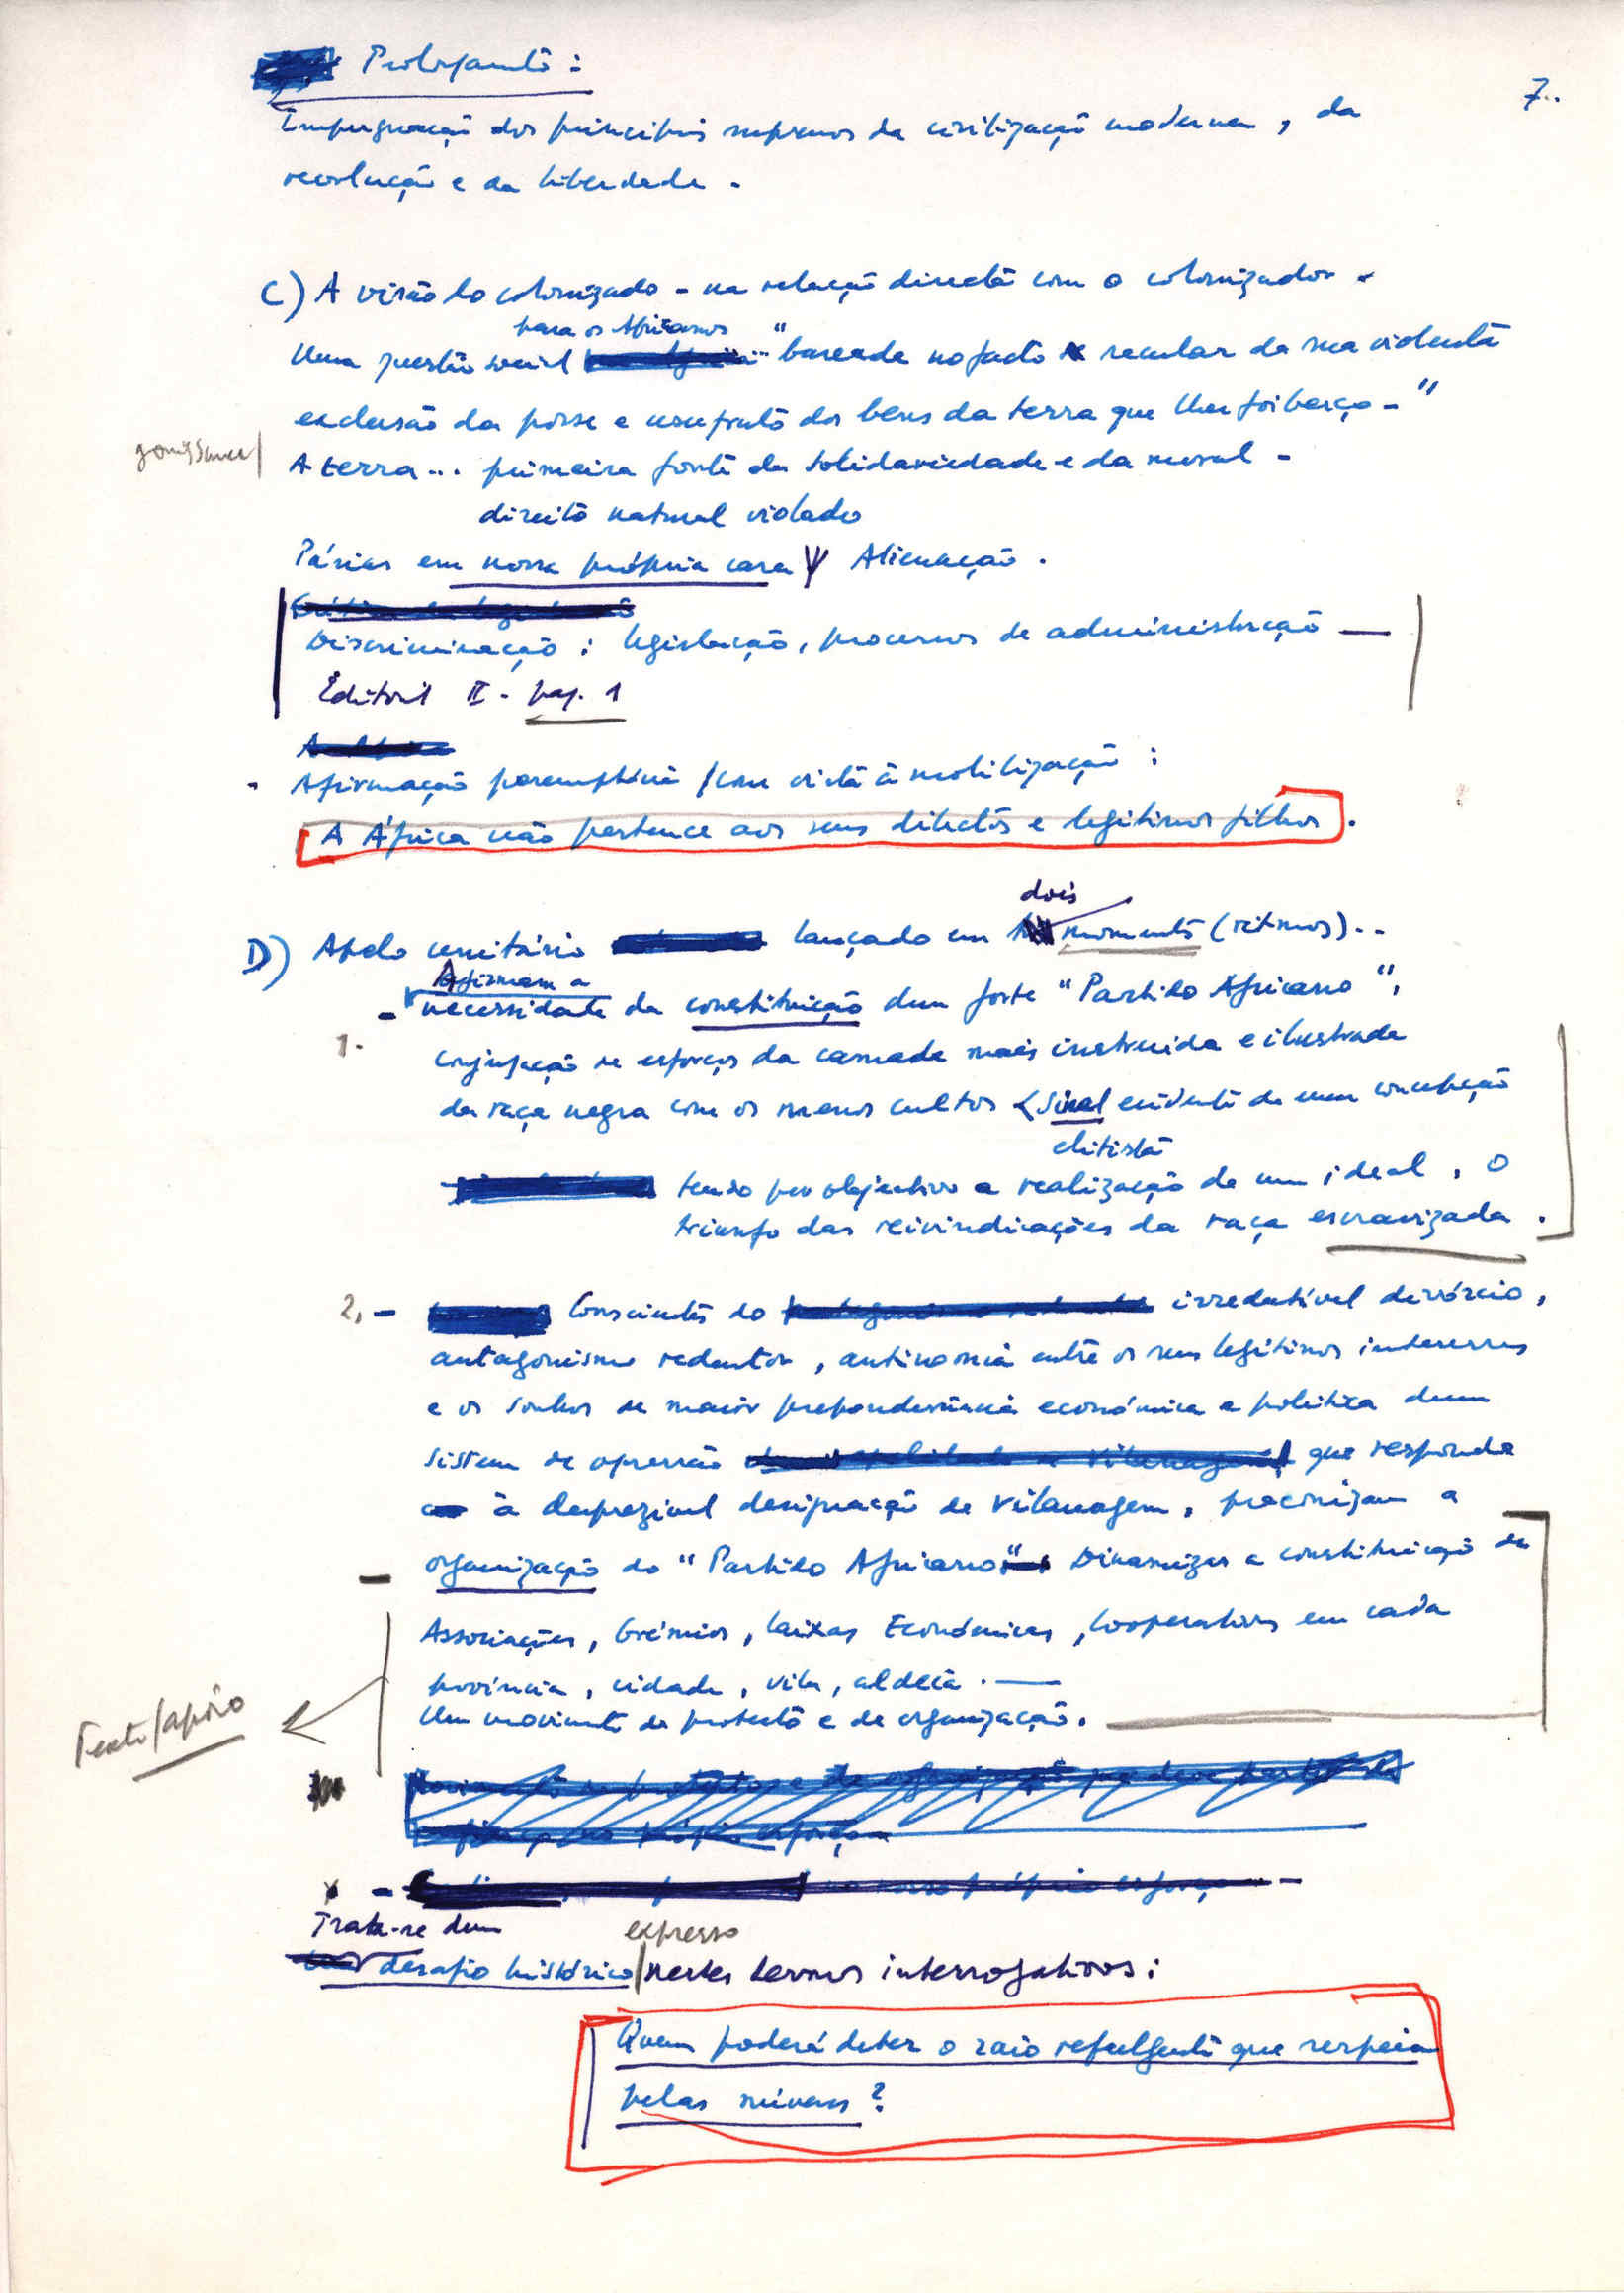 7..
Protofanto:
Impugnação dos principios supremos da civilização moderna, da
revolução e da liberdade.
C) A visão do colonizado - na relação directa com o colonizador.
para os Africanos
Uma questão social "baseada no facto secular da sua violenta
exclusão da posse e usufruto dos bens da terra que lhes foi berço-"
jouissance
A terra... primeira fonte da solidariedade e da moral -
direito natural violado
Párias em nossa própria casa Alienação.
Discriminação: legislação, processos de administração —
Editorial II - pag. 1
- Afirmação peremptória / com vista à mobilização:
A África não pertence aos seus dilectos e legitimos filhos.
dois
D) Apelo unitário lançado em momentos (ritmos)..
Afirmam a
- necessidade da constituição dum forte "Partido Africano",
1. conjugação de esforços da camada mais instruida e ilustrada
da raça negra com os menos cultos (sinal evidente de uma concepção
elitista
tendo por objectivo a realização de um ideal, o
triunfo das reivindicações da raça escravizada.
2. - Conscientes do irredutível divórcio,
antagonismo redentor, antinomia entre os seus legitimos interesses
e os sonhos de maior preponderância económica e política dum
sistema de opressão que responde
à desprezivel designação de Vilanagem, preconizam a
organização do "Partido Africano" Dinamizar a constituição de
Associações, Grémios, Caixas Económicas, Cooperativas em cada
província, cidade, vila, aldeia. —
Um movimento de protesto e de organização.
Texto/apoio
Trata-se dum
expresso
desafio histórico nestes termos interrogativos:
Quem poderá deter o raio refulgente que serpeia
pelas núvens?